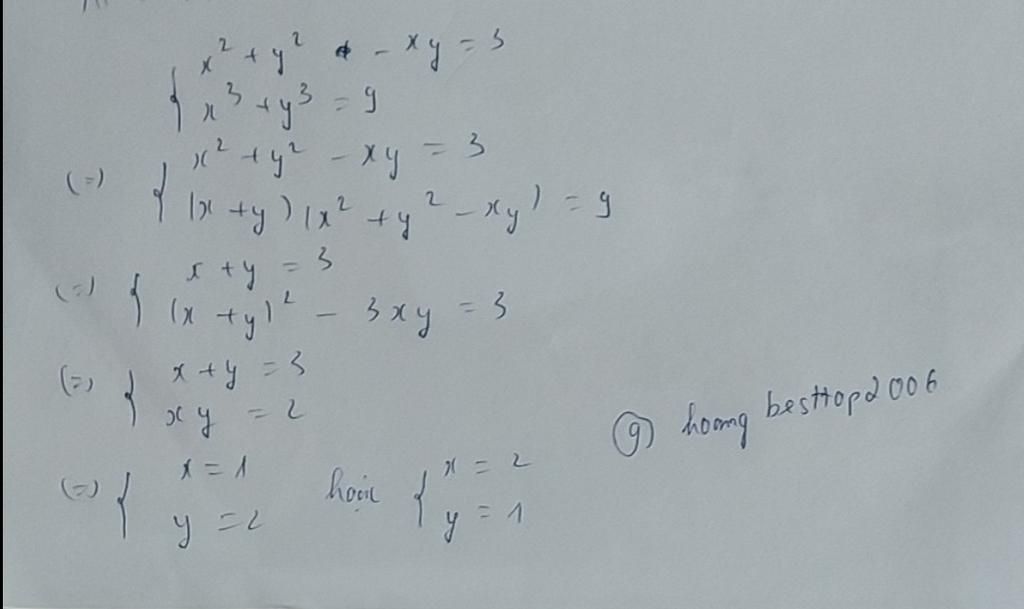 { x² + y² - xy = 3
x³ + y³ = 9
(=) { x² + y² - xy = 3
(x + y)(x² + y² - xy) = 9
(=) { x + y = 3
(x + y)² - 3xy = 3
(=) { x + y = 3
xy = 2
(=) { x = 1 hoặc { x = 2
y = 2 y = 1
@ hoang besttop2006